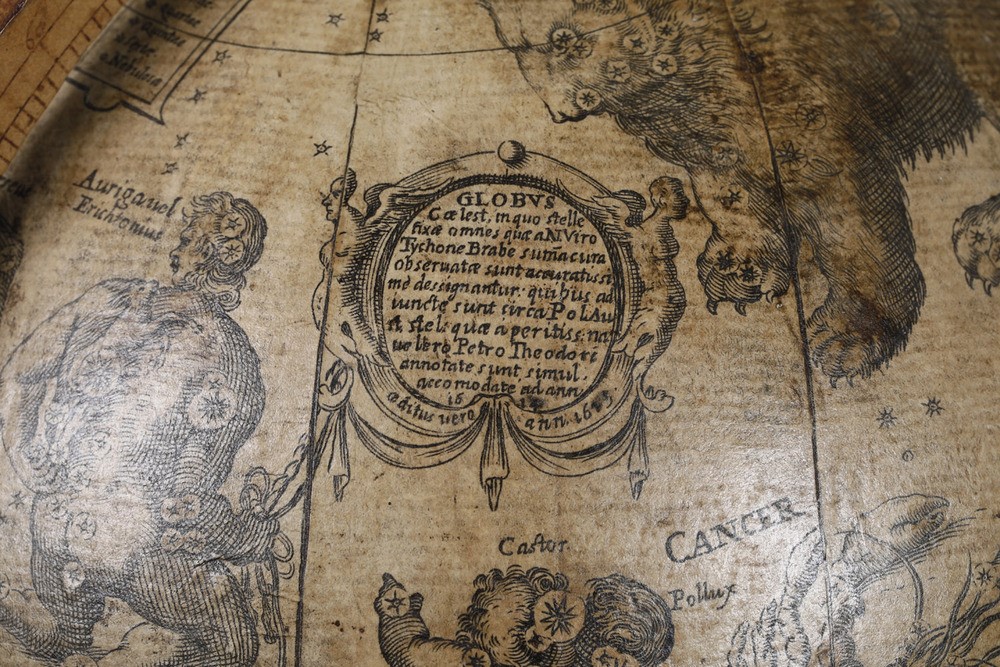 Nebulosa
Auriga vel
Erichtonius
GLOBVS
Cælest, in quo stelle
fixæ omnes quæ a N Viro
Tychone Brahe suma cura
obseruatæ sunt accuratissi
me dessignantur: quibus ad
iuncte sunt circa Pol. Au
st. stelę quæ a peritiss. na
uclero Petro Theodori
annotate sunt simul.
accomodate ad ann
16
æditus vero ann.
Castor
CANCER
Pollux